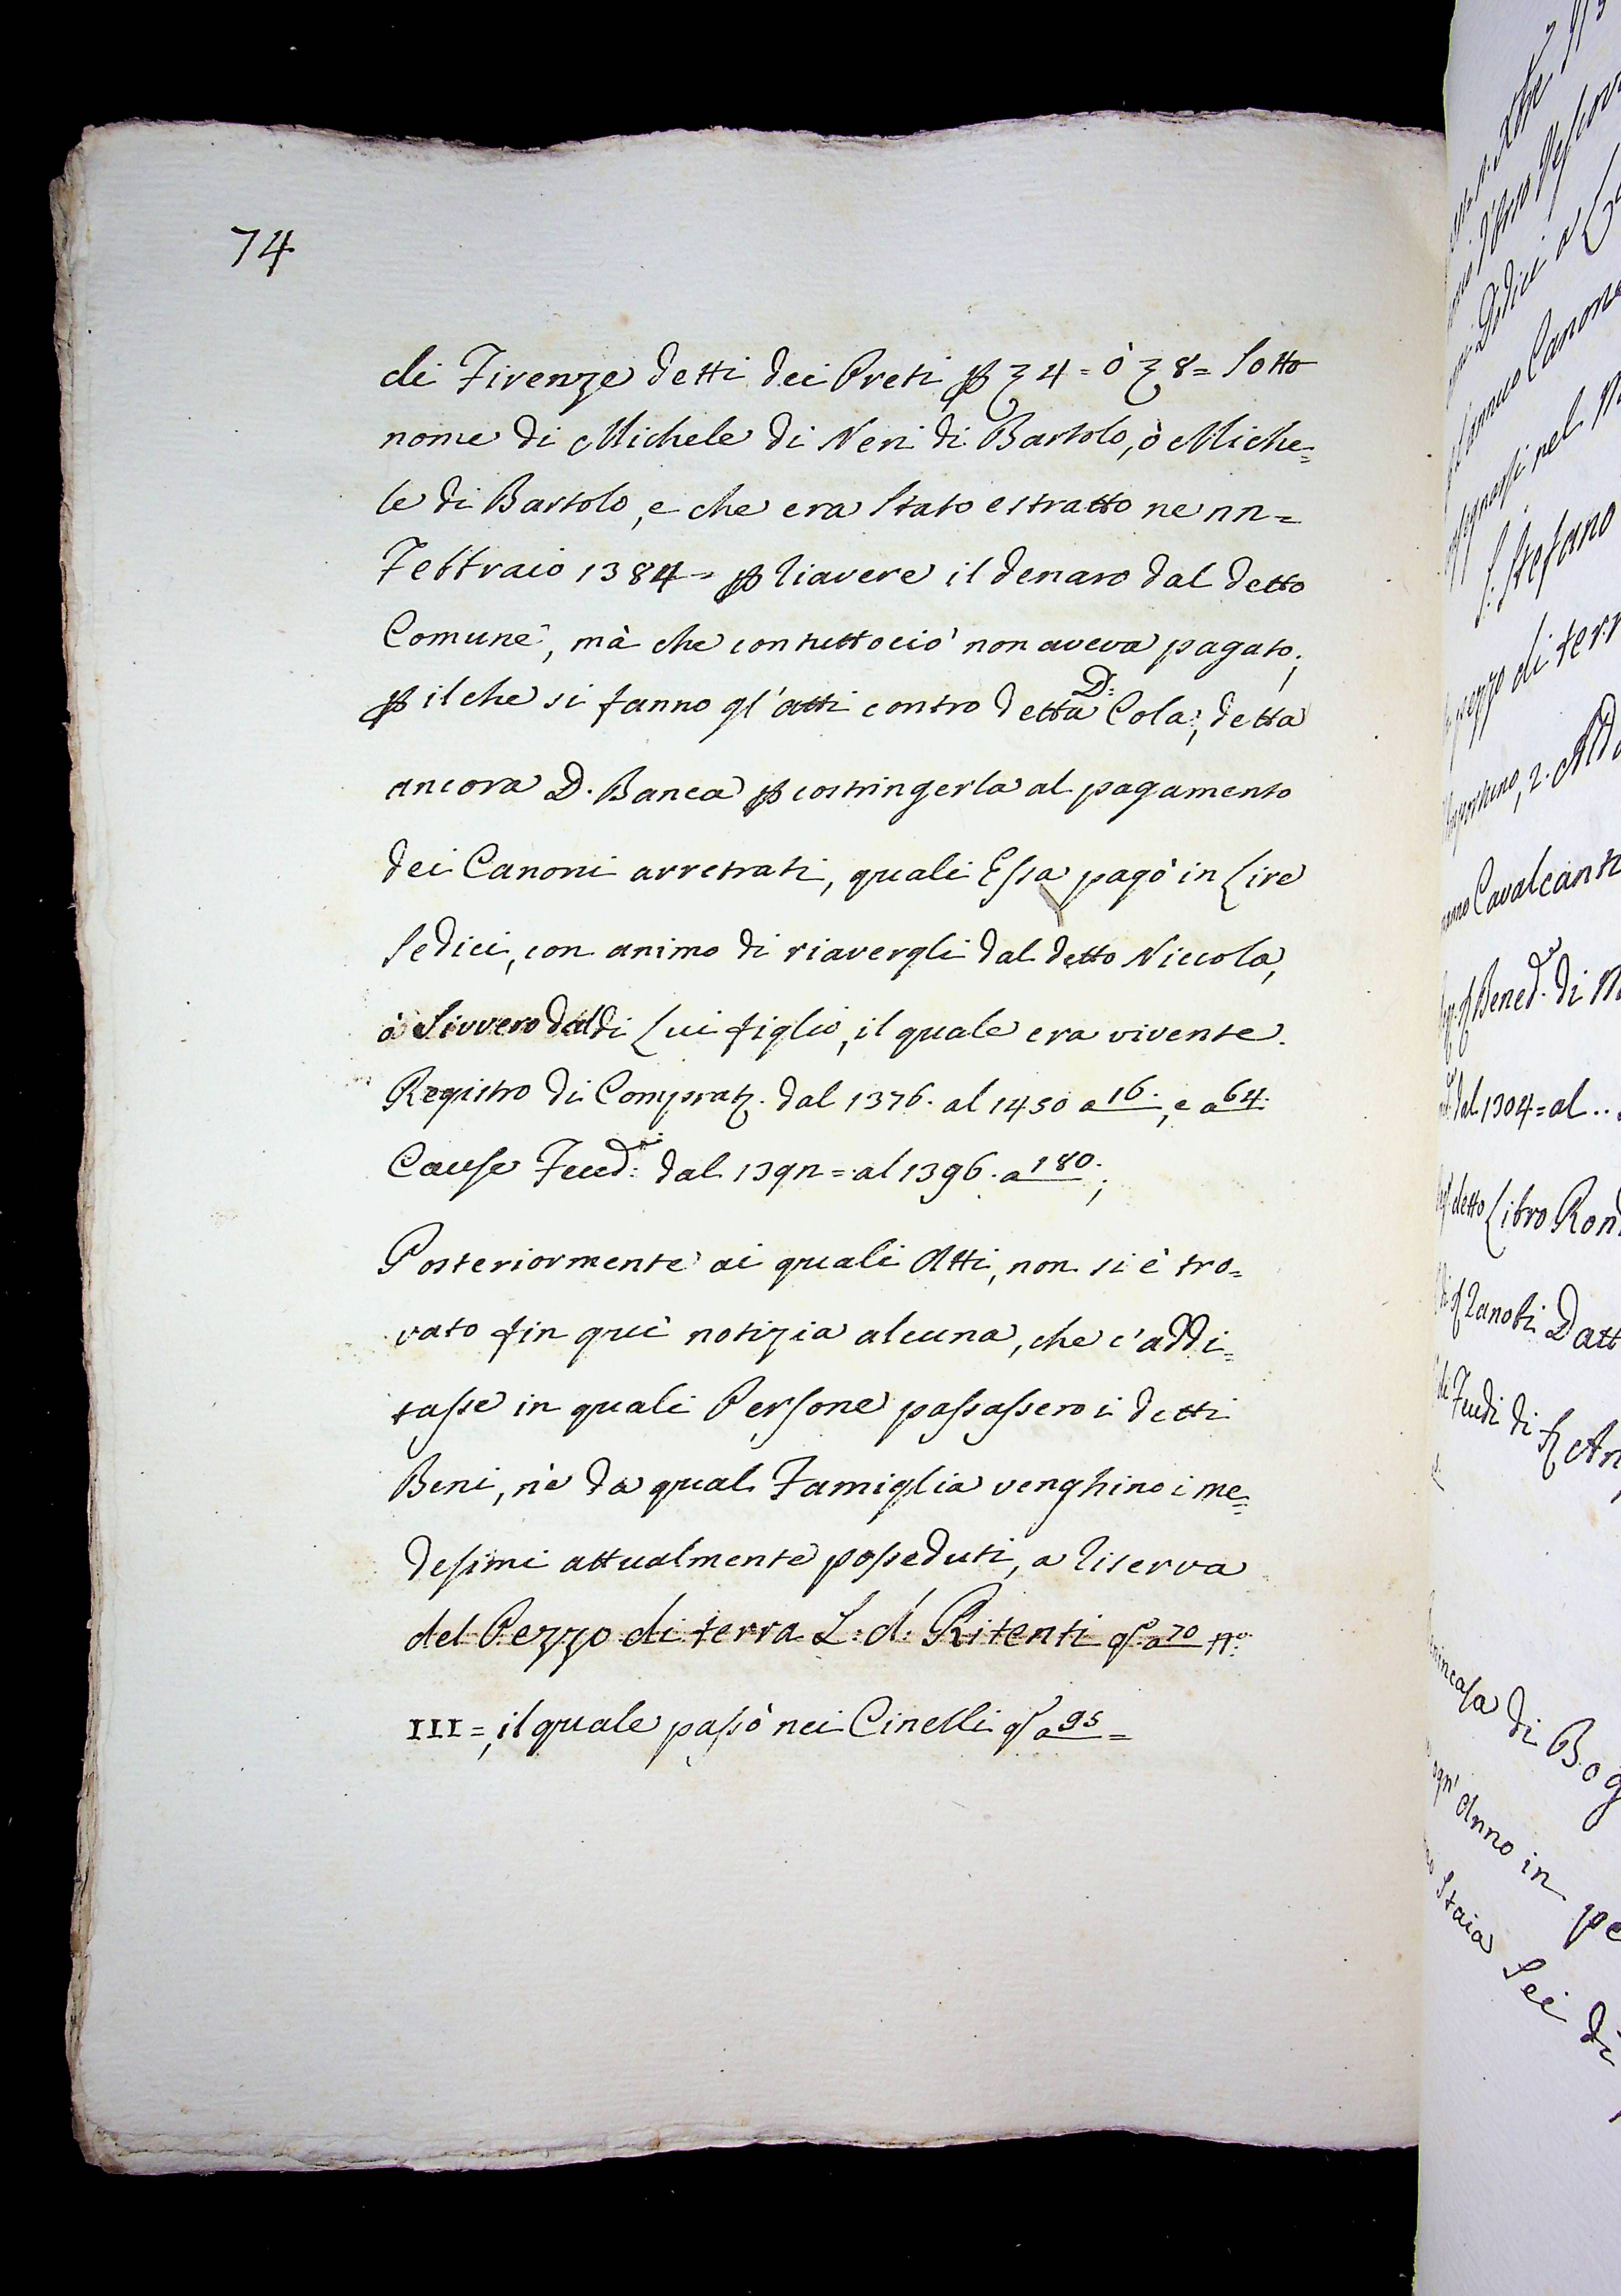 74
di Firenze detti dei Preti ꝑ ʒ 4 = ò ʒ 8 = Sotto
nome di Michele di Neri di Bartolo, ò Miche=
le di Bartolo, e che era Stato estratto ne 22 =
Febbraio 1384 = ꝑ riavere il denaro dal detto
Comune, mà che contuttociò non aveva pagato;
ꝑ il che si fanno gl'atti contro detta D: Cola, detta
ancora D. Banca ꝑ costringerla al pagamento
dei Canoni arretrati, quali Essa pagò in Lire
Sedici, con animo di riavergli dal detto Niccola,
ò Sivvero dal di Lui figlio, il quale era vivente.
Registro di Compratꝫ. dal 1376. al 1450 a 16., e a 64.
Cause Feud: dal 1392 = al 1396. a 180.;
Posteriormente ai quali Atti, non si è tro=
vato fin quì notizia alcuna, che c'addi=
tasse in quali Persone passassero i detti
Beni, nè da qual Famiglia venghino i me=
desimi attualmente posseduti, a riserva
del Pezzo di terra L: d: Ritenti a 70 n.º
III =, il quale passò nei Cinelli a 95 =
S. Stefano
pezzo di terr
Cavalcanti
Bened. di M
dal 1304 = al ..
detto Libro Rond
Zanobi Datt
Feudi di
di Bog
ogn' Anno in pe
Staia Sei di